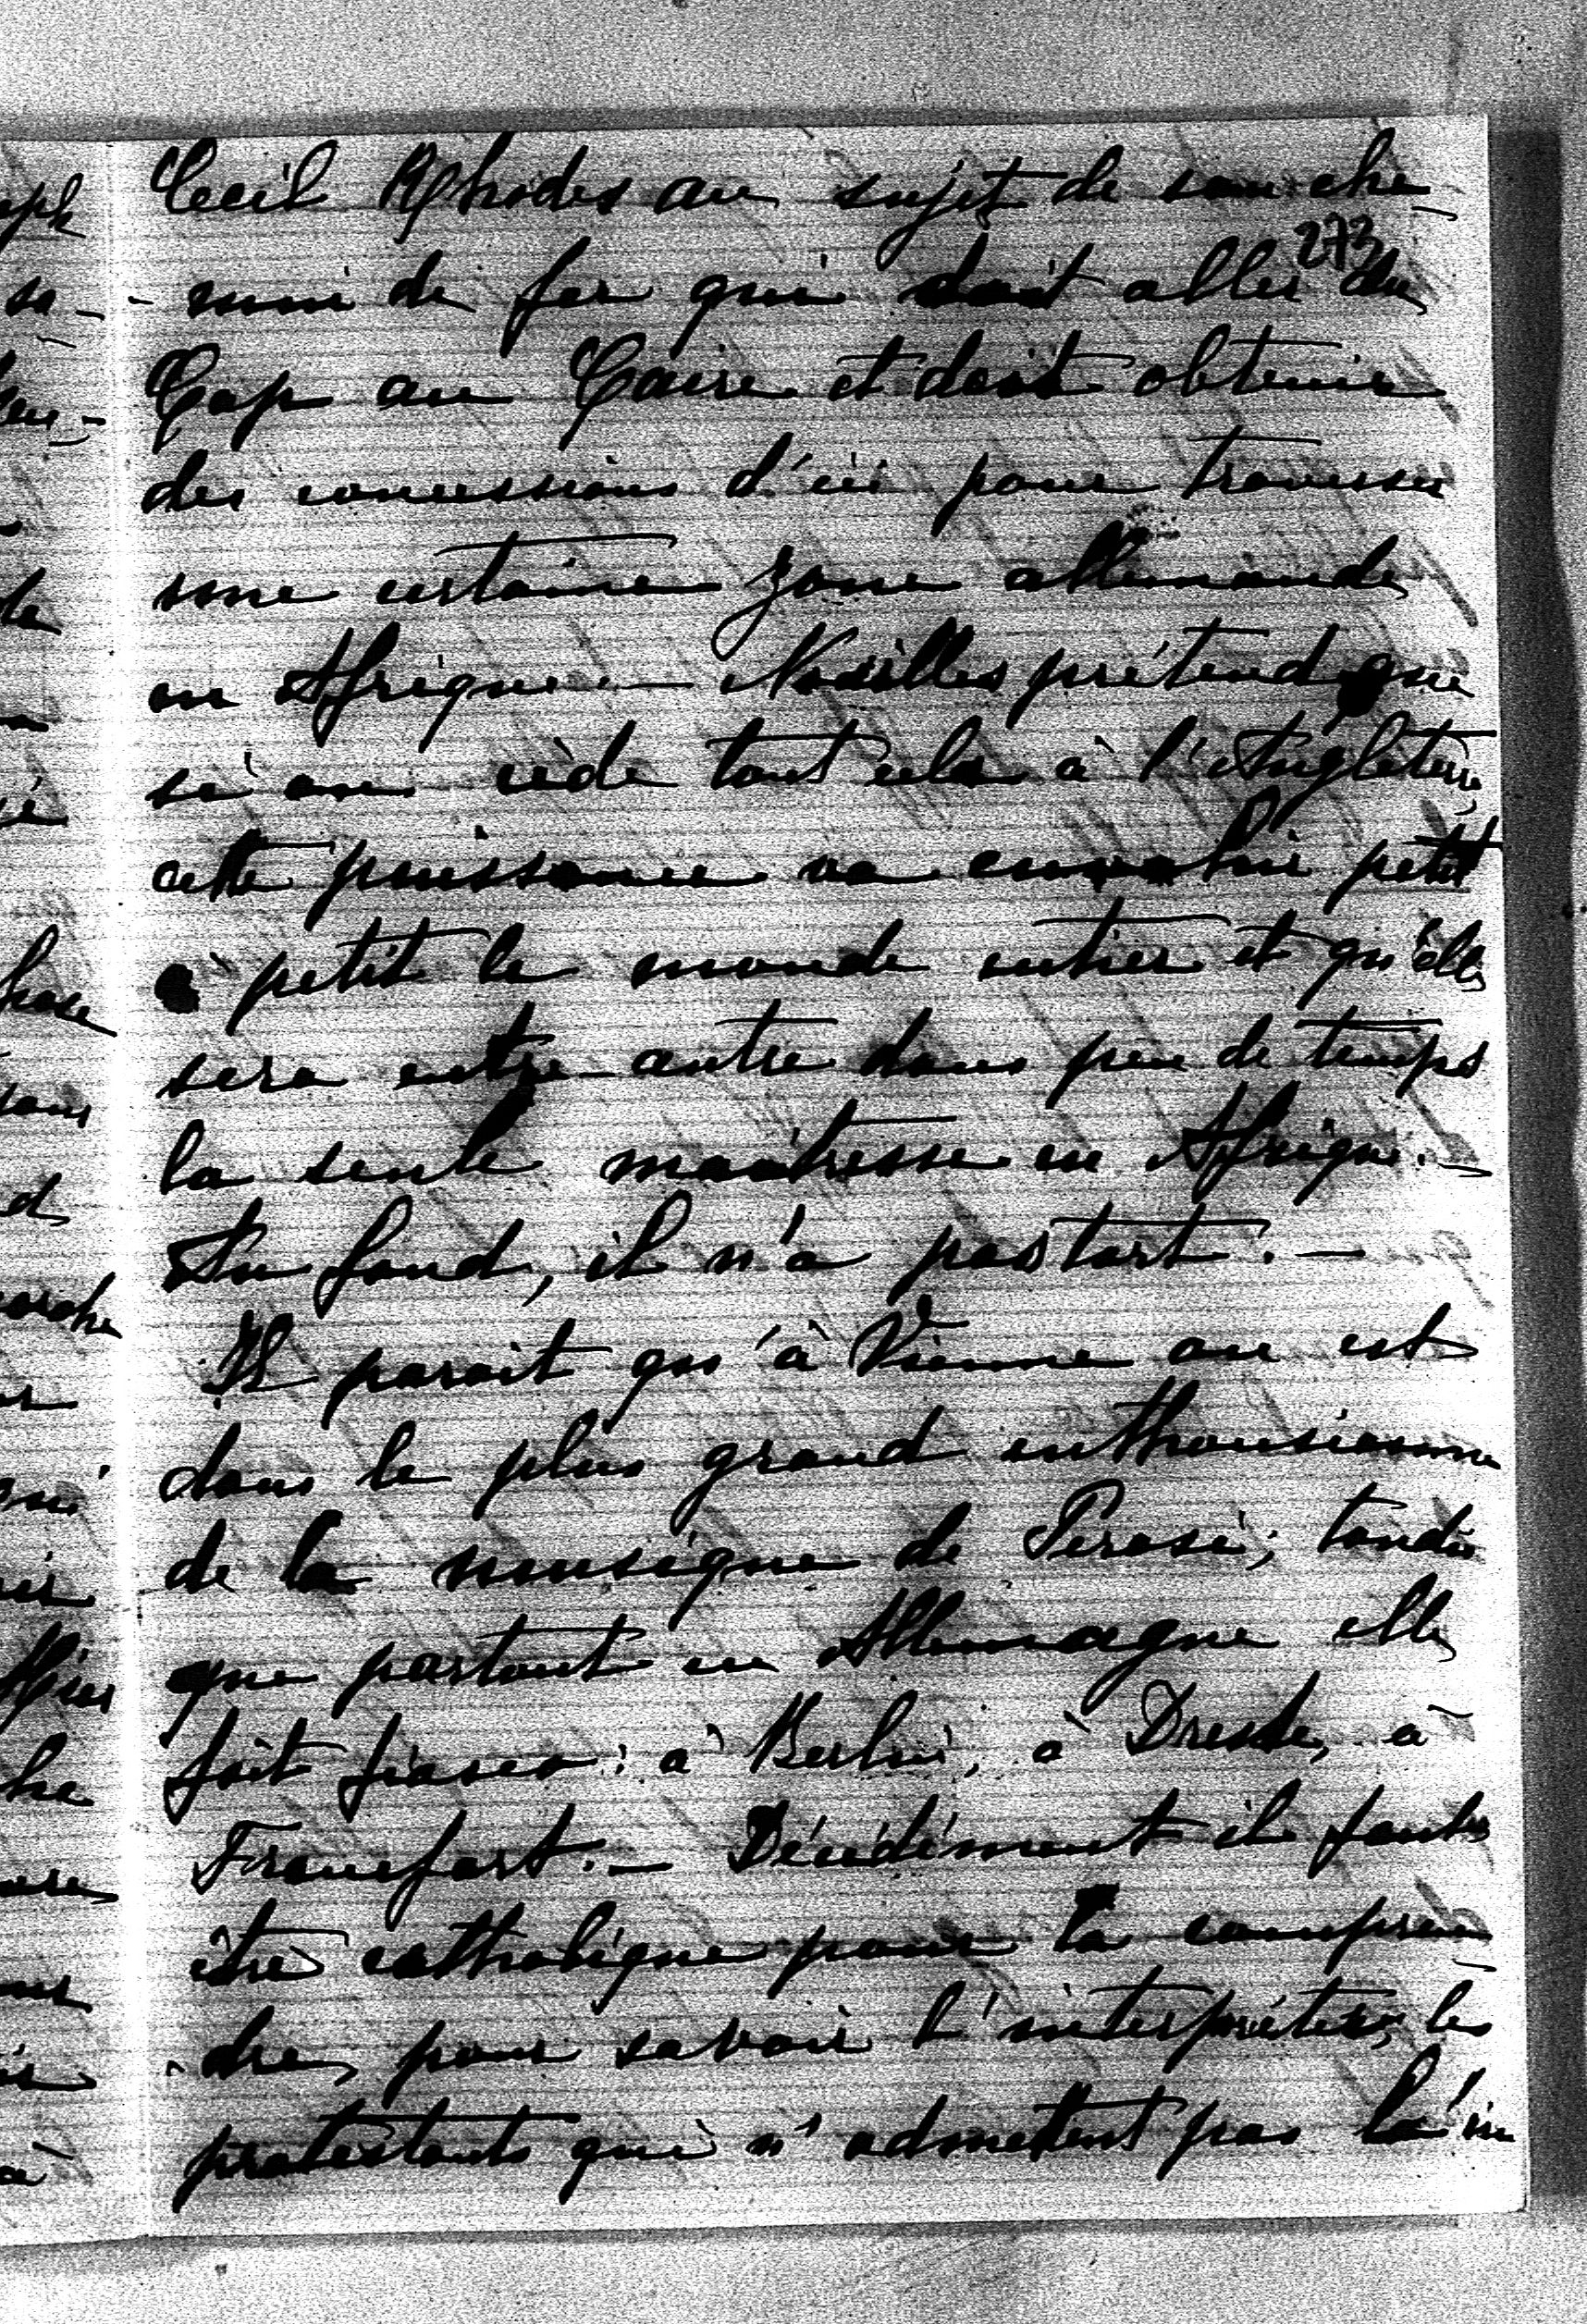 Cecil Rhodes au sujet de son che-
273
- min de fer qui doit aller du
Cap au Caire et doit obtenir
des concessions d'ici pour traverser
une certaine zone allemande
en Afrique. — Noailles prétend que
si on cède tout cela à l'Angleterre,
cette puissance va envahir petit
à petit le monde entier et qu'elle
sera entre autre dans peu de temps
la seule maîtresse en Afrique. —
Au fond, il n'a pas tort. —
Il parait qu'à Vienne on est
dans le plus grand enthousiasme
de la musique de Perosi; tandis
que partout en Allemagne elle
fait fiasco: à Berlin, à Dresde, à
Francfort. — Décidément il faut
être catholique pour la compren-
- dre, pour savoir l'interpréter; les
protestants qui n'admettent pas la in